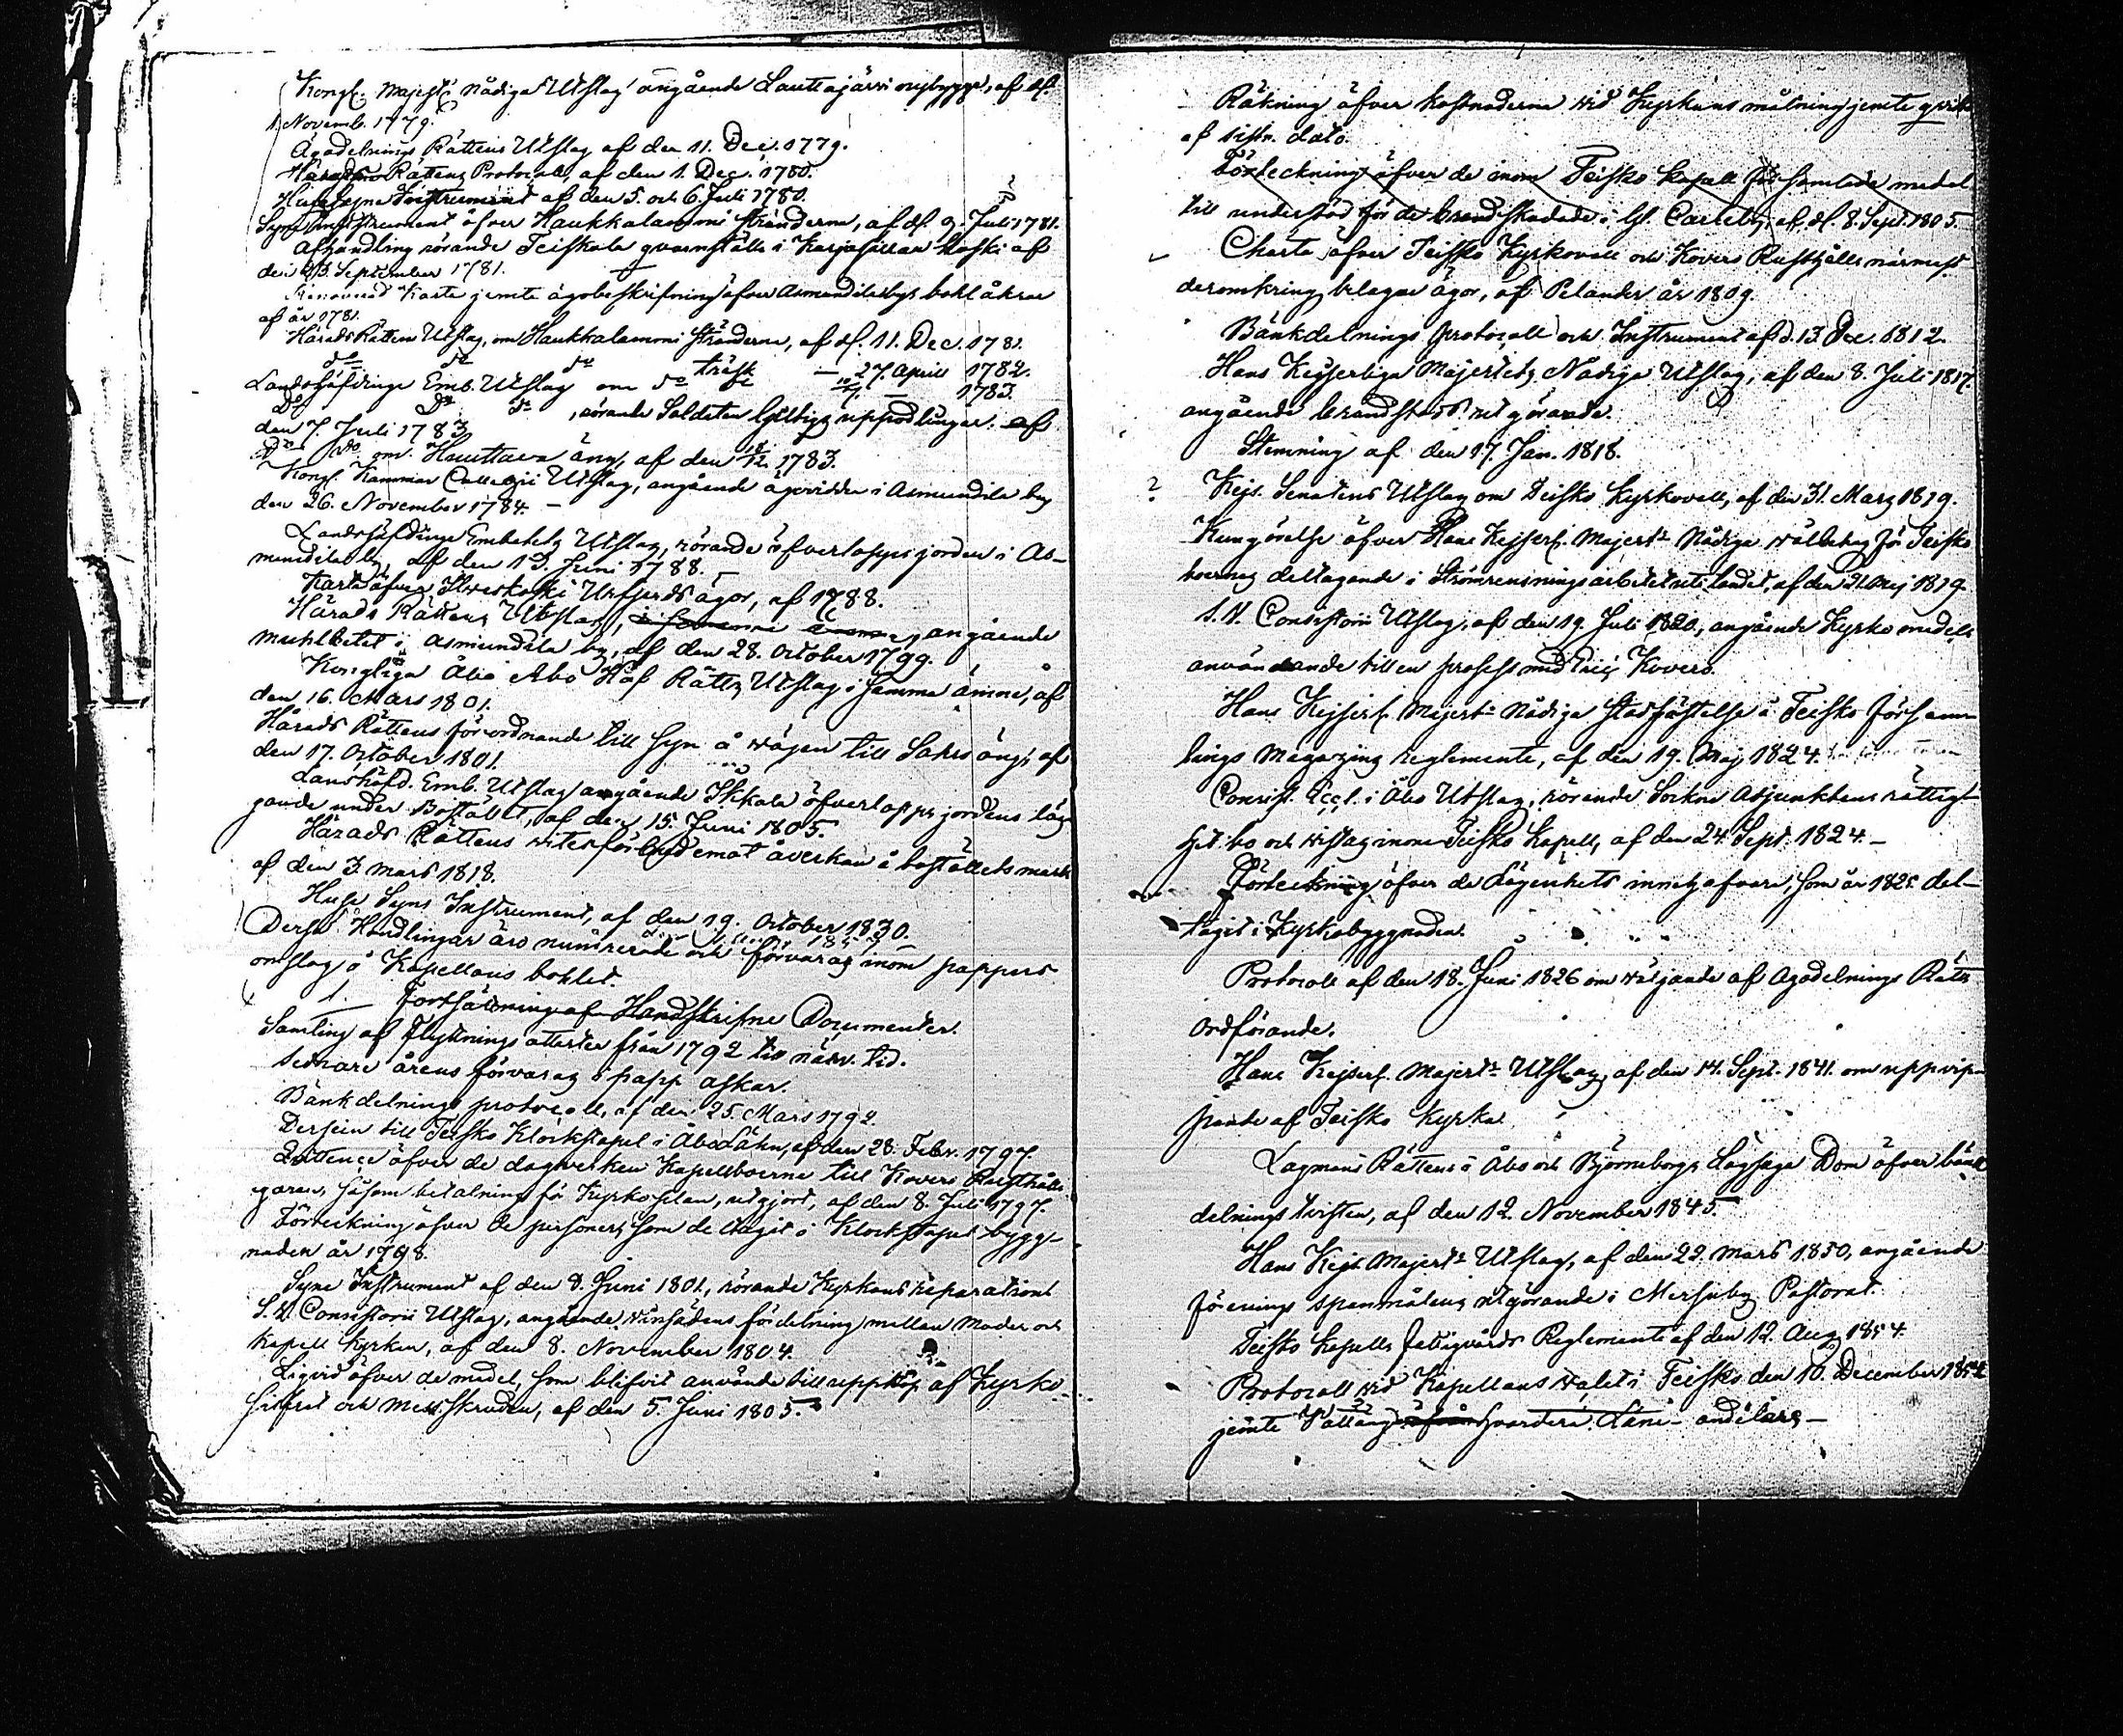 Kongl. Majest:s Nådiga Utslag angående Lauttajärvi nybygge, af d.
1. Novemb. 1779.
Ägodelnings Rättens Utslag af den 11. Dec. 1779.
Härads Rättens Protocoll, af den 1. Dec. 1780.
Husesyns Instrument af den 5. och 6. Juli 1780.
Syns Instrument öfver Haukkalammi stränderna, af d. 9. Juli 1781.
Afhandling rörande Teiskola qvarnställe i Karjasillan koski af
den 23. September 1781.
Renoverad Karta jemte ägobeskrifning öfver Asmundilaby bohl åkrar
af år 1781.
Härads Rättens Utslag, om Haukkalammi Stränderne, af d. 11. Dec. 1781.
d:o d:o d:o träsk — 27. April 1782.
Landshöfdinge Emb. Utslag om d:o d:o — 1783.
D:o D:o d:o, rörande Soldaten uppodlingar. af
den 7. Juli 1783.
D:o d:o om Hauttava äng, af den 1783.
Kongl. Kammar Collegii Utslag, angående ägovidden i Asmundila by
den 26. November 1784. —
Landshöfdinge Embetets Utslag, rörande öfverlopps jorden i As-
mundila by, af den 13. Juni 1788.
Karta öfver Urfjerds ägor, af 1788.
Härads Rättens Utslag, angående
muhlbetet i Asmundila by, af den 28. October 1799.
Kongliga Åbo Hof Rätts Utslag i samma ämne, af
den 16. Mars 1801.
Härads Rättens förordnande till syn å vägen till Sakris äng, af
den 17. October 1801.
Landshöfd. Emb. Utslag angående Iskala öfverlopps jordens läg-
gande under Bostället, af den 15. Juni 1805.
Härads Rättens vitesförbud emot åverkan å boställets mark
af den 3. Mars 1818.
Huse Syns Instrument, af den 19. October 1830.
Dessa Handlingar äro numrerade och förvaras inom pappers
omslag å Kapellans bohlet.
1. Fortsättning af Handskrifne Documenter.
Samling af Flyttnings attester från 1792 till närv. tid.
sednare årens förvaras i papp askar.
Bänkdelnings protocoll, af den 25. Mars 1792.
Dessein till Teisko Klockstapel i Åbo Lähn, af den 28. Febr. 1797.
Quittence öfver de dagsverken Kapellboerne till Kovero Rusthålls
egaren, såsom betalning för Kyrkoplan, utgjort, af den 8. Juli 1797.
Förteckning öfver de personer, som deltagit i Klockstapels bygg-
naden år 1798.
Syne Instrument af den 8. Juni 1801, rörande Kyrkans reparation
S. V. Consistorii Utslag, angående vinsädens fördelning mellan Moder och
Kapell Kyrkan, af den 8. November 1804.
Liqvid öfver de medel, som blifvit använde till uppköp af Kyrko
silfret och Messskruden, af den 5. Juni 1805.
Räkning öfver kostnaderna vid Kyrkans målning jemte qvitt
af sistn. dato.
Förteckning öfver de inom Teisko Kapell församlade medel
till understöd för de brandskadade i Gl. Carleby, af d. 8. Sept. 1805.
Charta öfver Teisko Kyrkovall och Kovero Rusthålls närmast
deromkring belägne ägor, af Pelander år 1809.
Bänkdelnings protocoll och Instrument af d. 13. Dec. 1812.
Hans Kejserliga Majestets Nådiga Utslag, af den 8. Juli 1817.
angående brandstods utgörande.
Stemning af den 17. Jan. 1818.
? Kejs. Senatens Utslag om Teisko Kyrkovall, af den 31. Mars 1819.
Kungörelse öfver Hans Kejserl. Majest:s Nådiga välbehag för Teisko
boernes deltagande i Strömrensningsarbetet uti landet, af den 21. Maj 1819.
S. V. Consistorii Utslag, af den 19. Juli 1820, angående Kyrko medels
användande till en process med Eric Kovero.
Hans Kejserl. Majest:s Nådiga stadfästelse å Teisko försam-
lings Magazins reglemente, af den 19. Maj 1824.
Consist. Eccl. i Åbo Utslag, rörande Sockne Adjunktens rättig-
het bo och vistas inom Teisko Kapell, af den 24. Sept. 1824. —
Förteckning öfver de Lägenhets innehafvare, som år 1825. del-
tagit i Kyrkobyggnaden.
Protocoll af den 18. Juni 1826 om väljande af Ägodelnings Rätts
Ordförande.
Hans Kejserl. Majest:s Utslag, af den 14. Sept. 1841. om
af Teisko Kyrka.
Lagmans Rättens i Åbo och Björneborgs Lagsaga Dom öfver bänk
delnings tvisten, af den 12. November 1845.
Hans Kejs. Majest:s Utslag, af den 22. Mars 1850, angående
förenings spanmålens utgörande i Messuby Pastorat.
Teisko Kapells fattigvårds Reglemente af den 12. Aug. 1854.
Protocoll vid Kapellans valet i Teisko den 10. December 1854
jemte